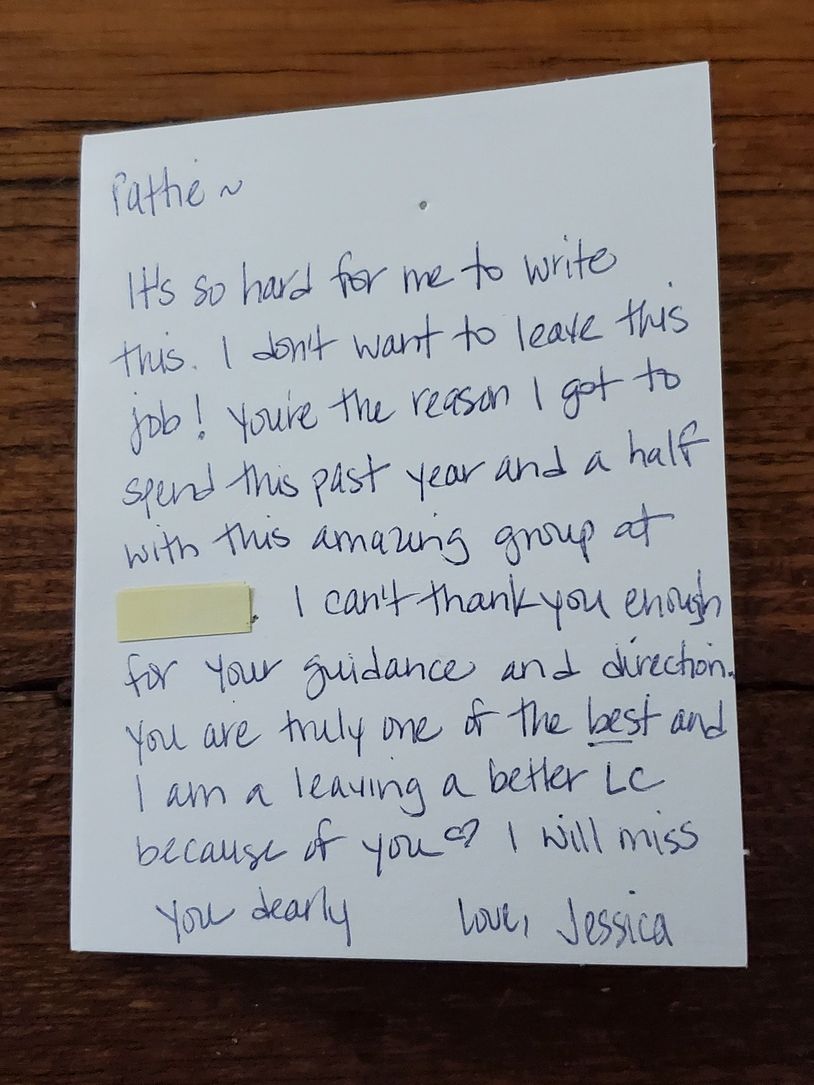 Pattie ~
It's so hard for me to write
this. I don't want to leave this
job! You're the reason I got to
spend this past year and a half
with this amazing group at
. I can't thank you enough
for your guidance and direction.
You are truly one of the best and
I am a leaving a better LC
because of you♡ I will miss
you dearly Love, Jessica